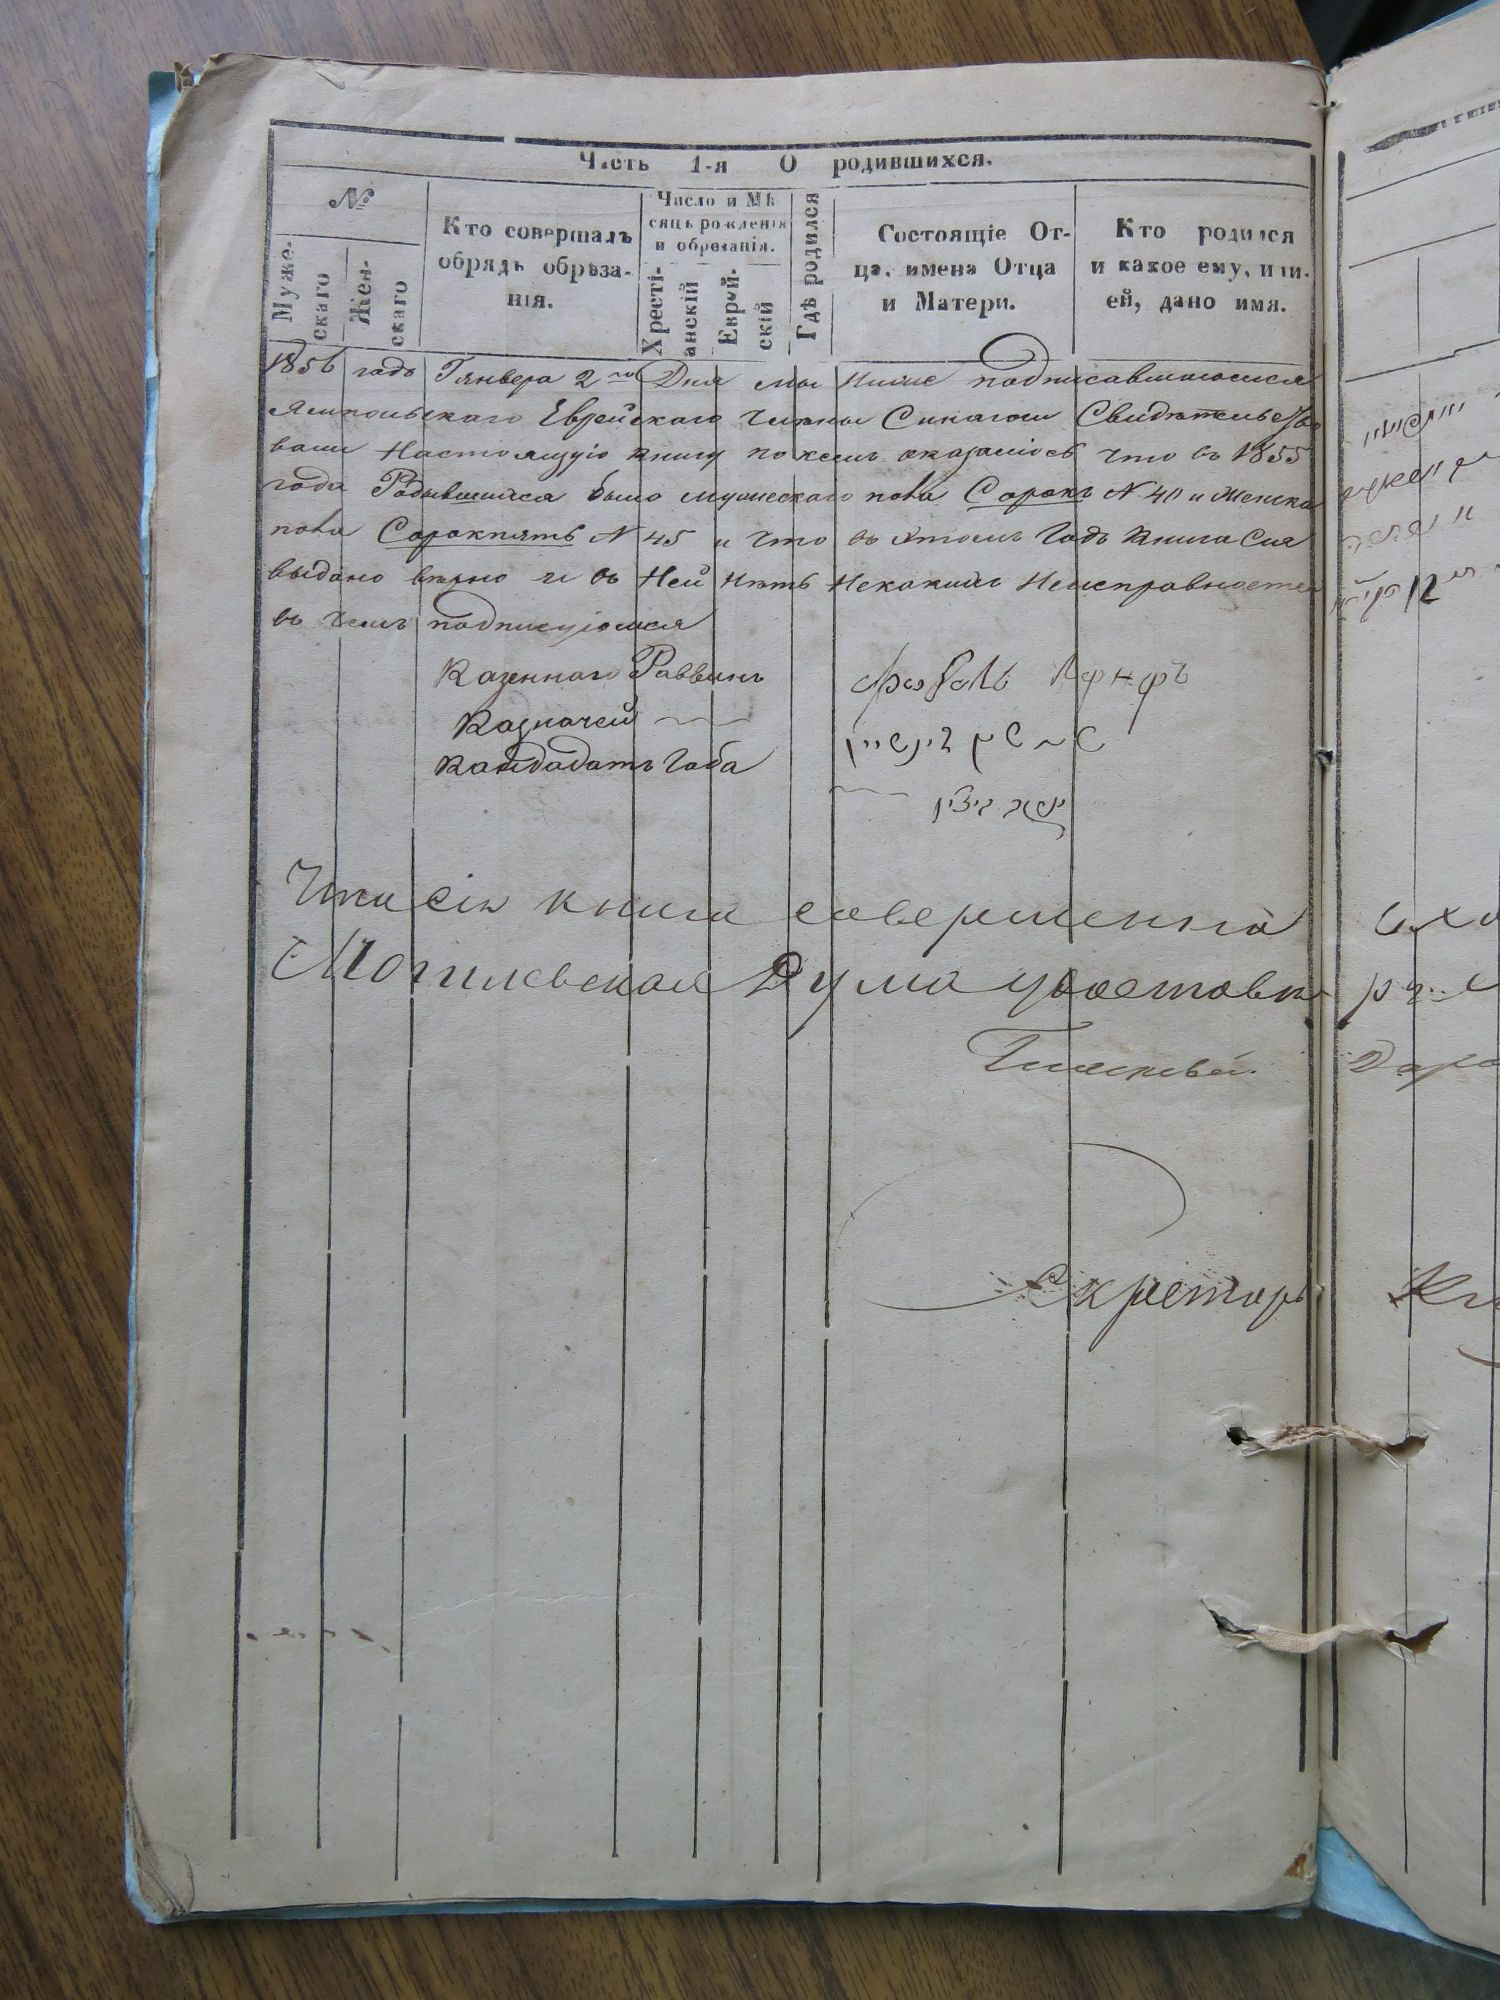 Часть 1-я О родившихся.
№
Муже-
скаго
Жен-
скаго
Кто совершалъ
обрядъ обрѣза-
нія.
Число и Мѣ
сяцъ рожденія
и обрезанія.
Хресті-
анскій
Еврей-
скій
Гдѣ родился
Состоящіе От-
ца, имена Отца
и Матери.
Кто родился
и какое ему, или-
ей, дано имя.
1856 года Генвера 2го Дня мы ниже подписавшаюсися
Ямпольскаго Еврейскаго члены Синагоги Свидѣтельство
вали Настоящую книгу по коей оказалось что въ 1855
года Родившихся было мужескаго пола Сорокъ N 40 и женска
пола Сорокпять N 45 и что въ этомъ Годъ книга Сия
выдано вѣрно и въ Ней Нѣтъ Некакихъ Неисправностей
въ чемъ подписуіомся
Казеннаго Раввинъ
Казначей
Кандадатъ Габа
Что сія книга совершенно
Могилевская Дума удостовѣ
Гласный
Секретарь
12